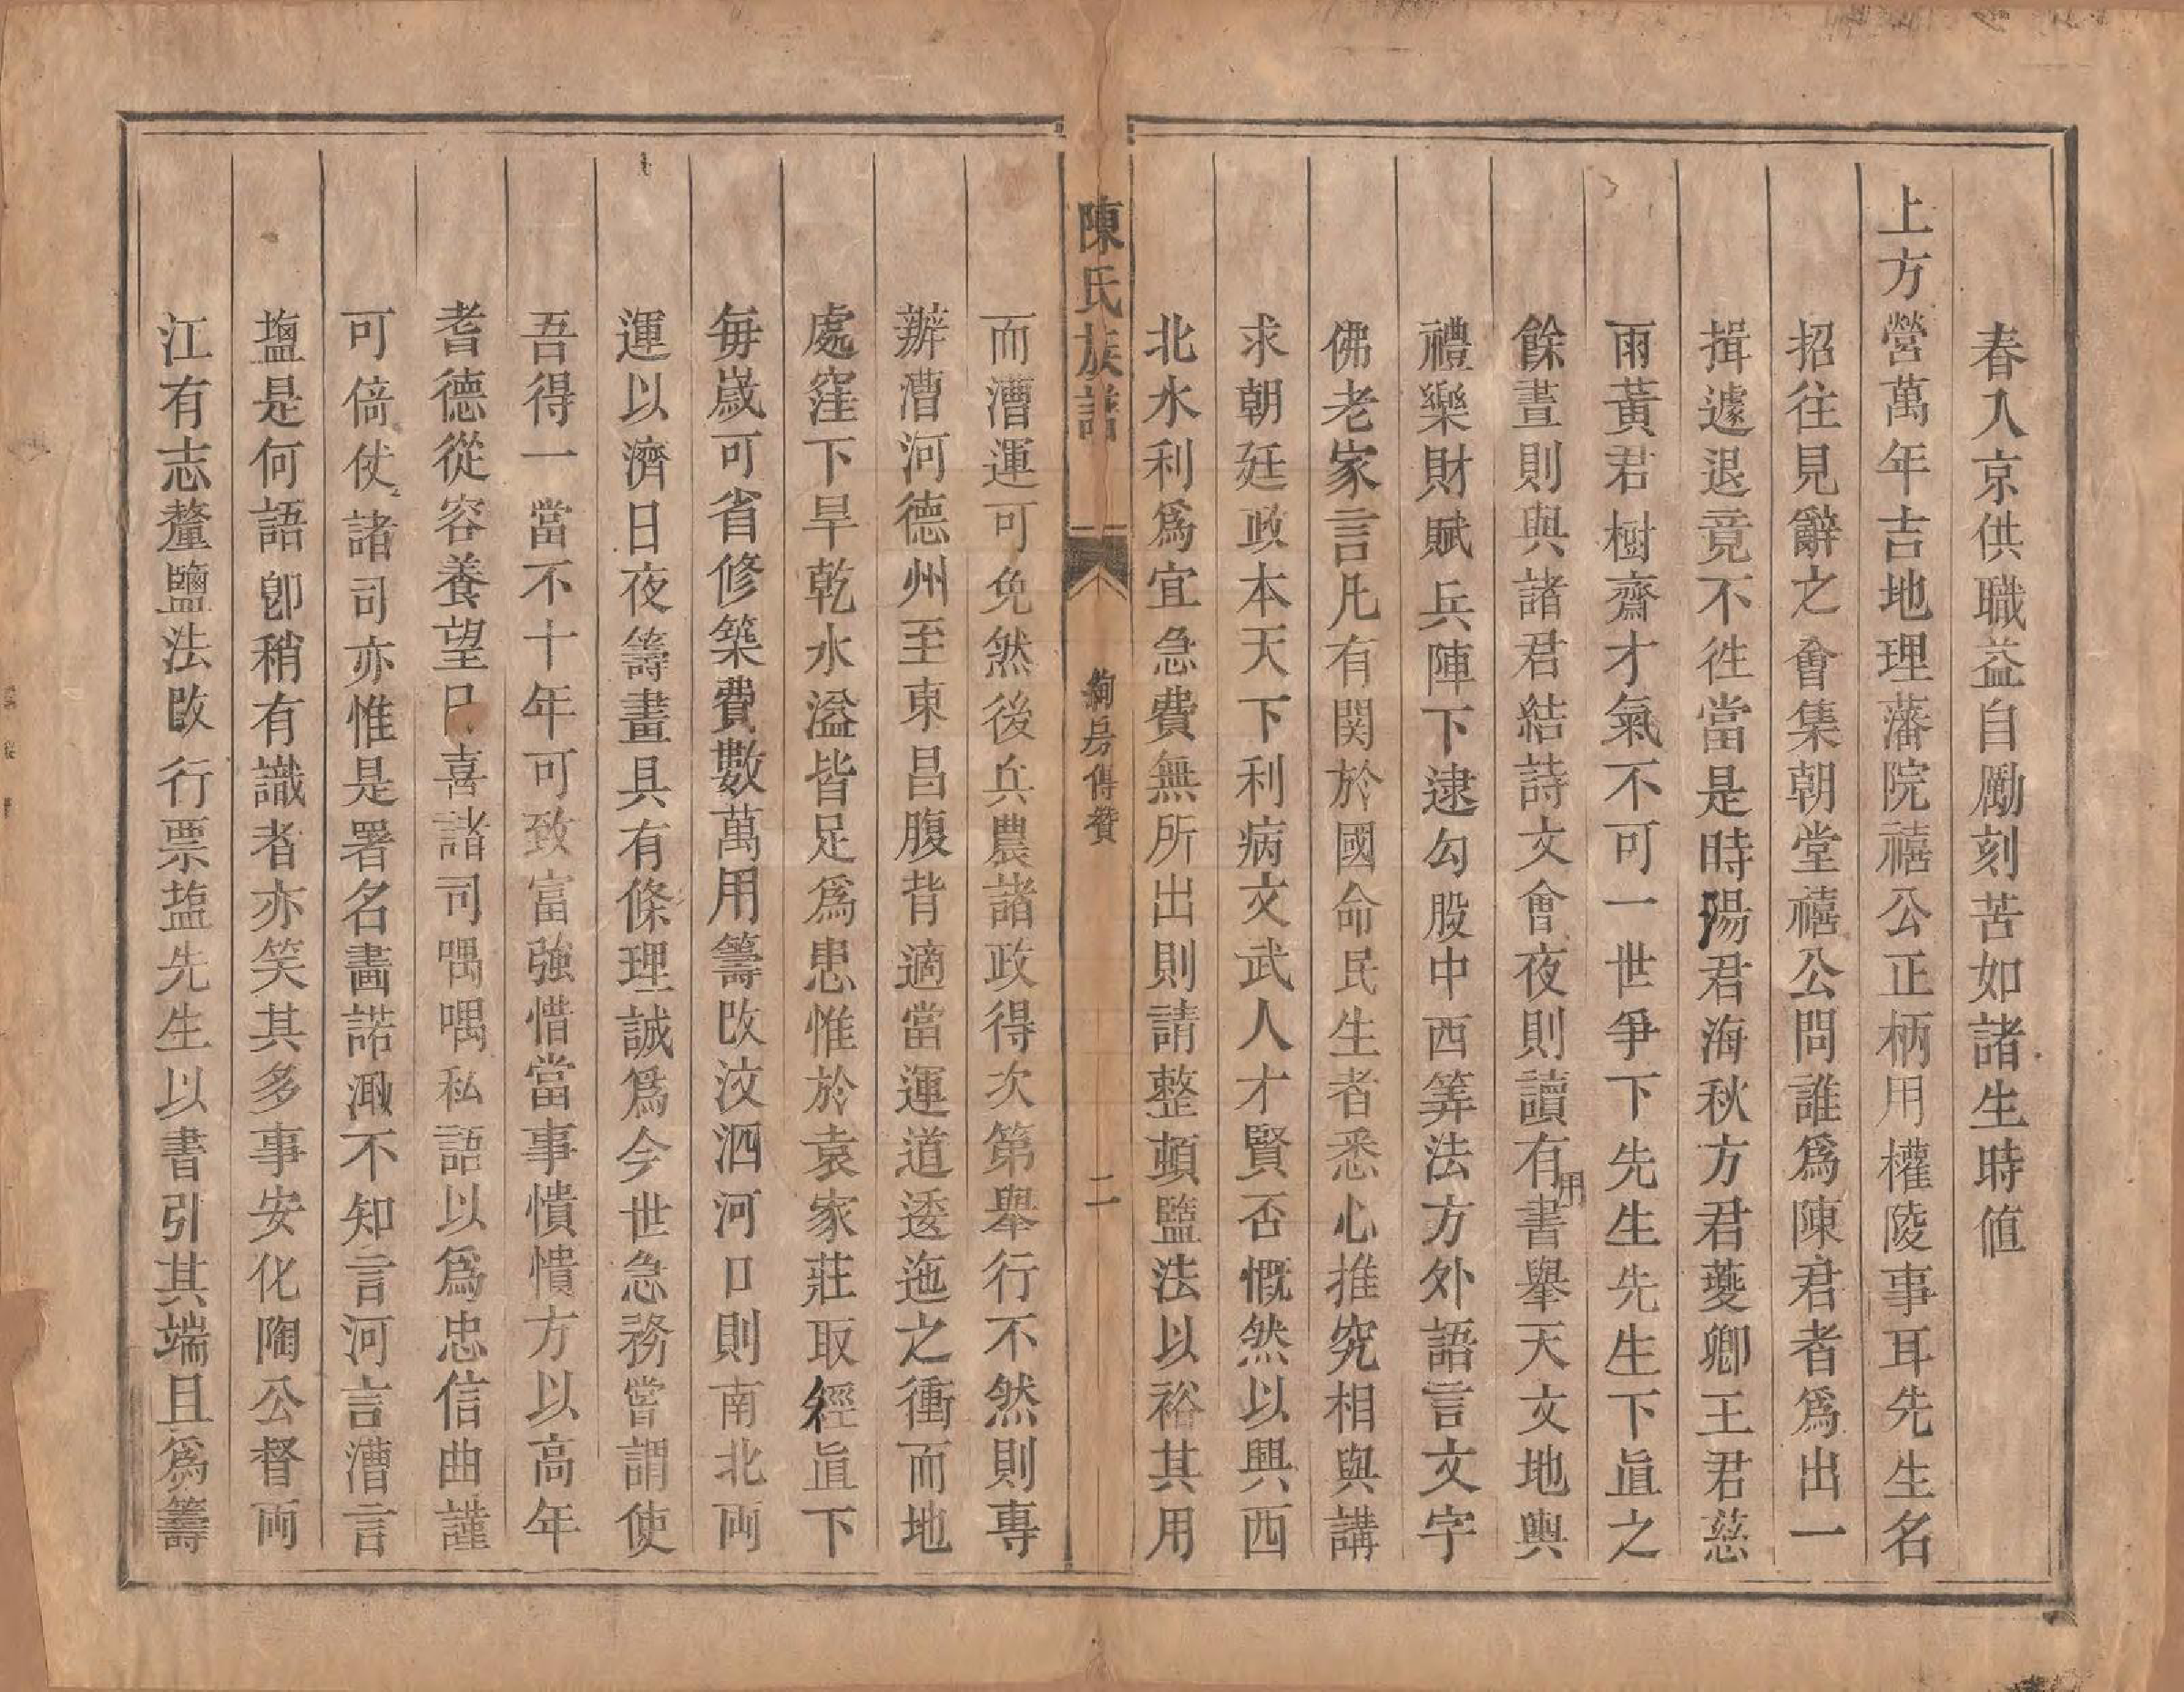 春入京供職益自勵刻苦如諸生時值
上方營萬年吉地理藩院禧公正柄用權陵事耳先生名
招往見辭之會集朝堂禧公問誰爲陳君者爲出一
揖遽退竟不徃當是時陽君海秋方君夔卿王君慈
雨黃君樹齋才氣不可一世爭下先生先生下直之
餘晝則與諸君結詩文會夜則讀有用書舉天文地輿
禮樂財賦兵陣下逮勾股中西筭法方外語言文字
佛老家言凡有関於國命民生者悉心推究相與講
求朝廷政本天下利病文武人才賢否慨然以興西
北水利爲宜急費無所出則請整頓鹽法以裕其用
陳氏族譜
絢房傳贊
二
而漕運可免然後兵農諸政得次第舉行不然則專
辦漕河德州至東昌腹背適當運道逶迤之衝而地
處窪下旱乾水溢皆足爲患惟於袁家莊取經直下
毎歲可省修築費數萬用籌改汶泗河口則南北両
運以濟日夜籌畫具有條理誠爲今世急務嘗謂使
吾得一當不十年可致富強惜當事憒憒方以高年
耆德從容養望已喜諸司喁喁私語以爲忠信曲謹
可倚仗諸司亦惟是署名畫諾漚不知言河言漕言
塩是何語卽稍有識者亦笑其多事安化陶公督両
江有志釐鹽法改行票塩先生以書引其端且爲籌